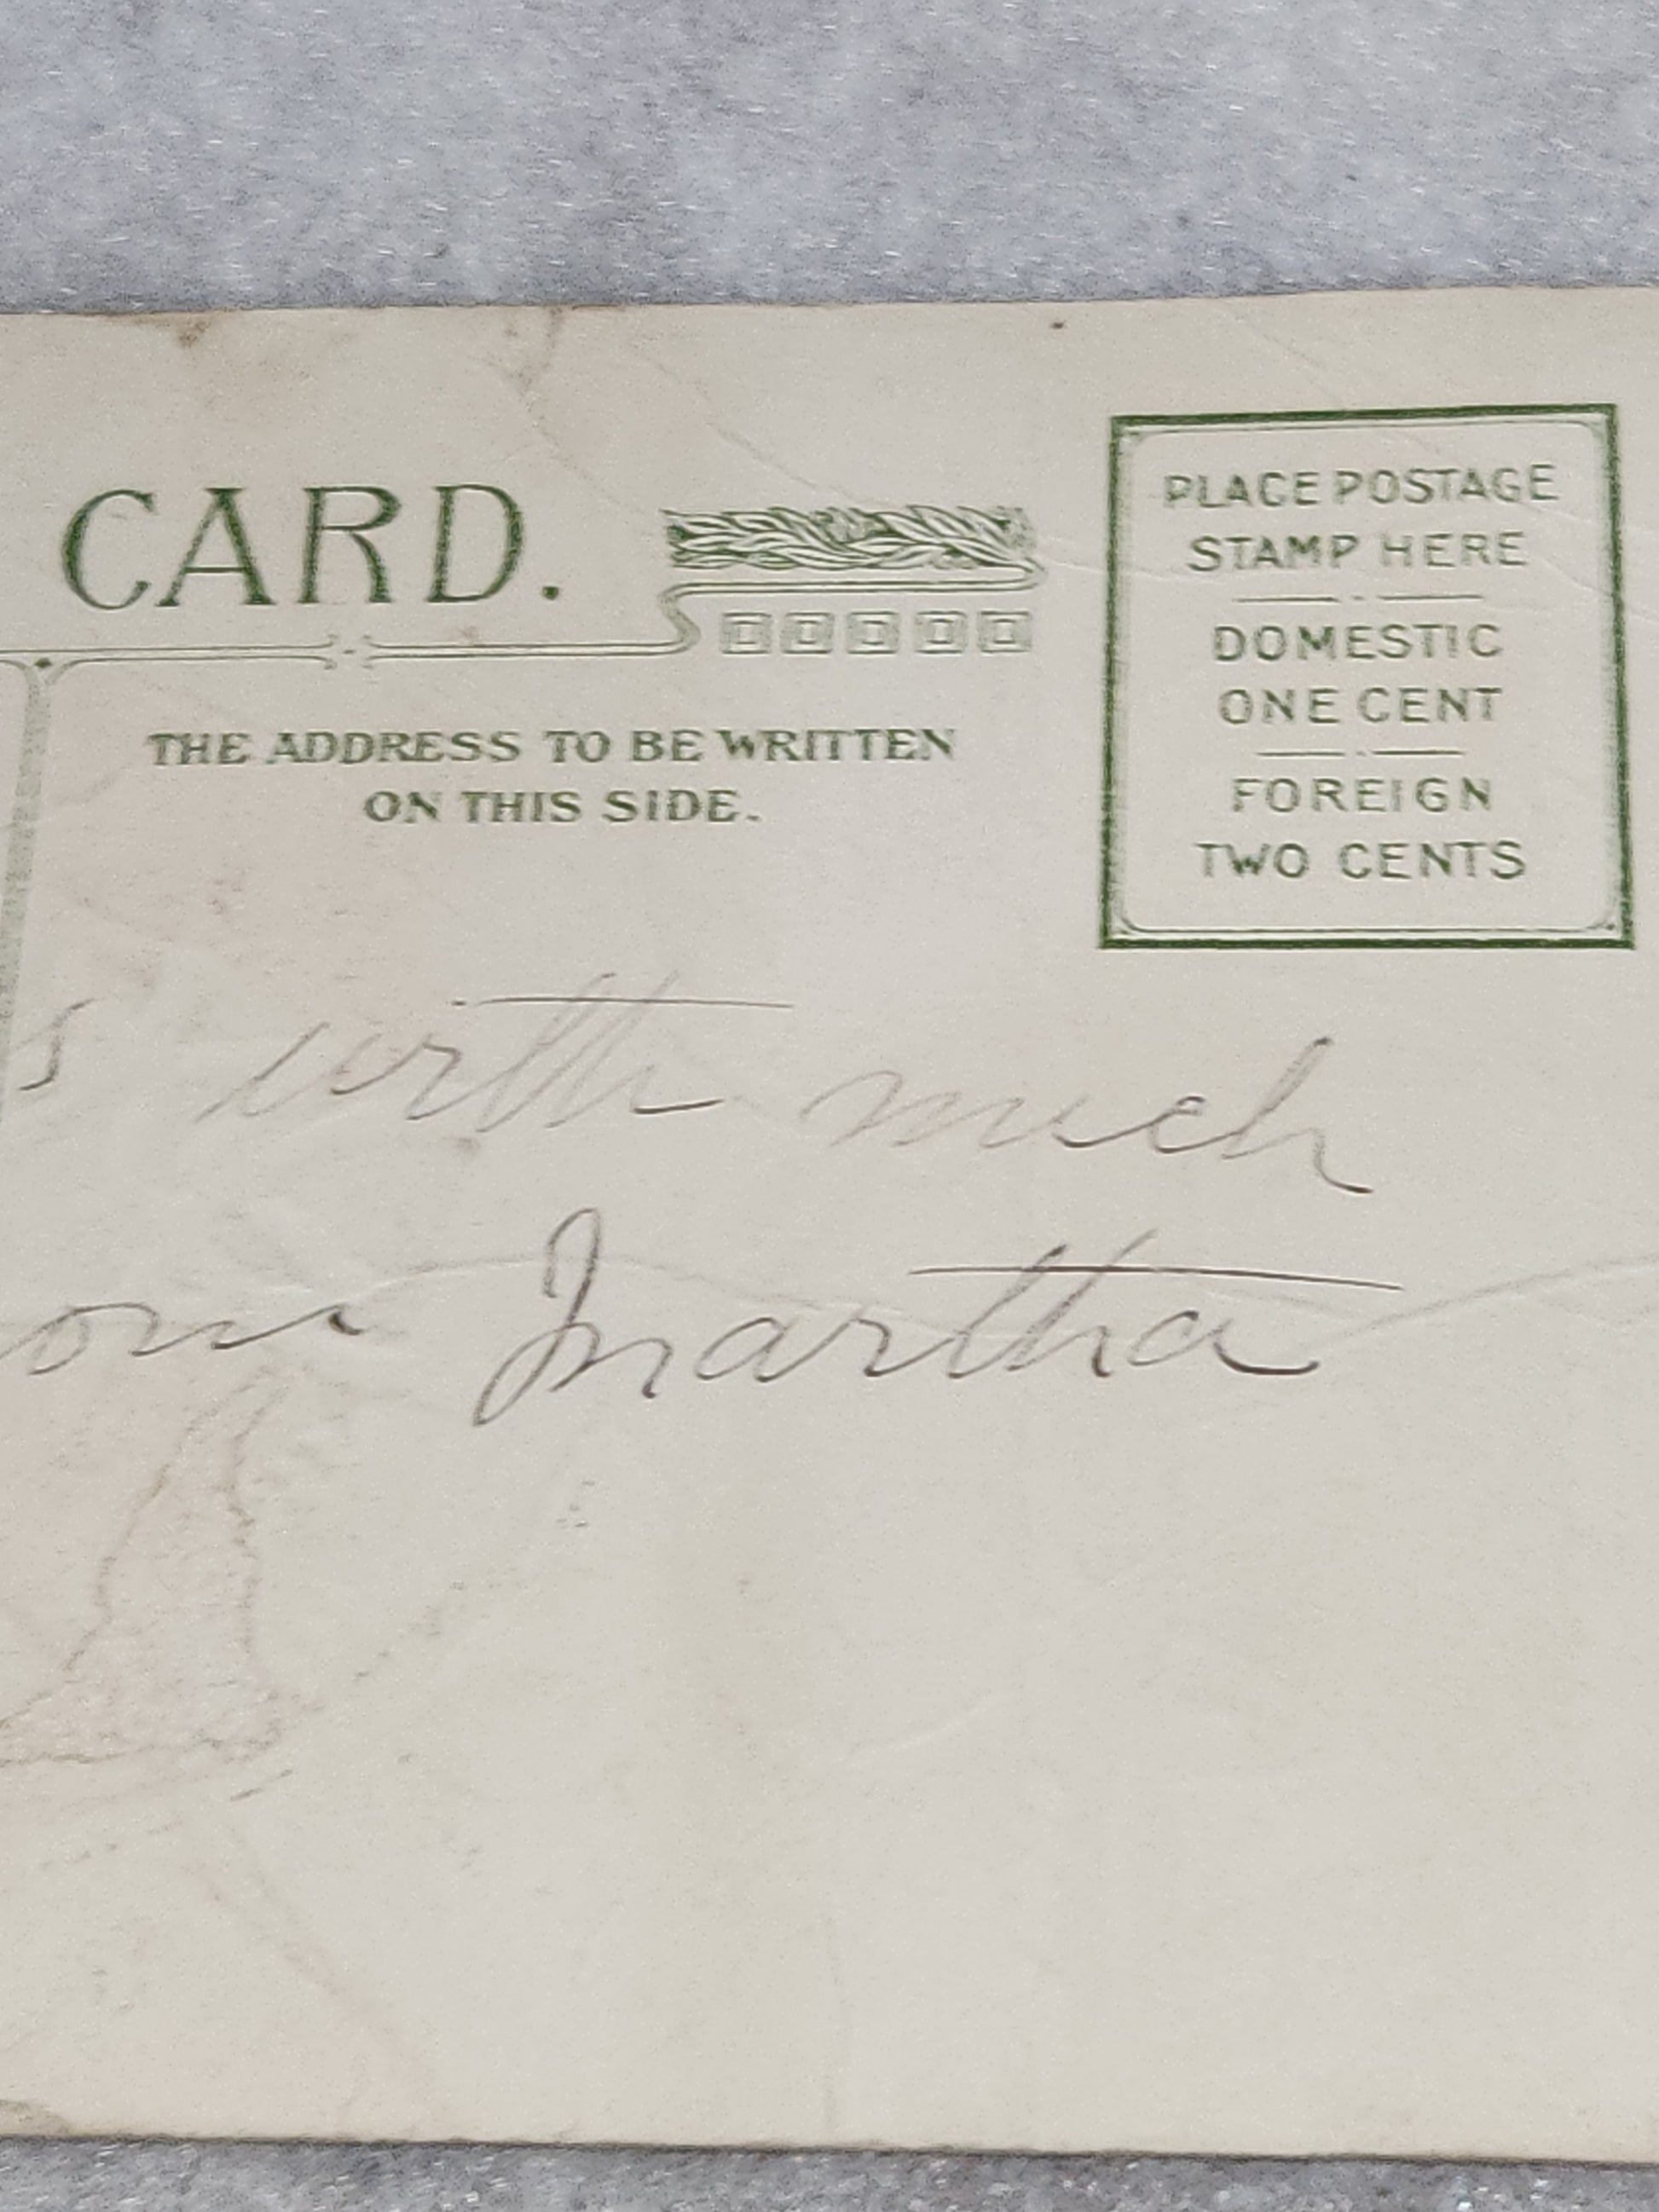 CARD.
PLACE POSTAGE
STAMP HERE
DOMESTIC
ONE CENT
FOREIGN
TWO CENTS
THE ADDRESS TO BE WRITTEN
ON THIS SIDE.
s with much
om Martha